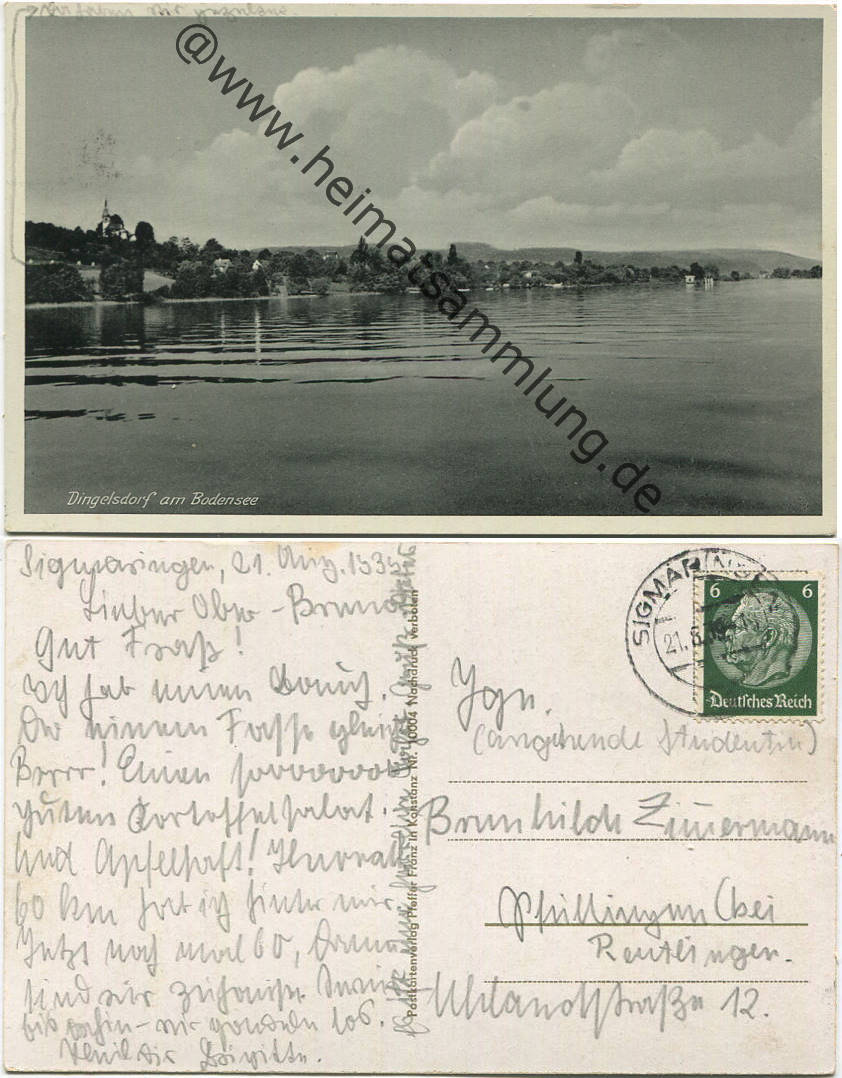 wir
@www.heimatsammlung.de
Dingelsdorf am Bodensee
Sigmaringen, 21. Aug. 1939
Lieber Ober-Bruno
Gut Fraß!
Ich hab einen
einem Fasse gleich
Brrr! Einen sooooooo
guten Kartoffelsalat.
Und Apfelsaft! Hurrah
60 km hab ich hinter mir.
Jetzt noch mal 60, dann
sind wir zuhause.
bis dahin - wir los.
Heil Dir Brigitte.
Postkartenverlag Pfeffer Franz in Konstanz Nr. 10004 Nachdruck verboten
SIGMARINGEN
21.8.39
6 6
Deutsches Reich
Fgn.
(angehende Studentin)
Brunhilde Zimmermann
Pfullingen (bei
Reutlingen.
Uhlandstraße 12.